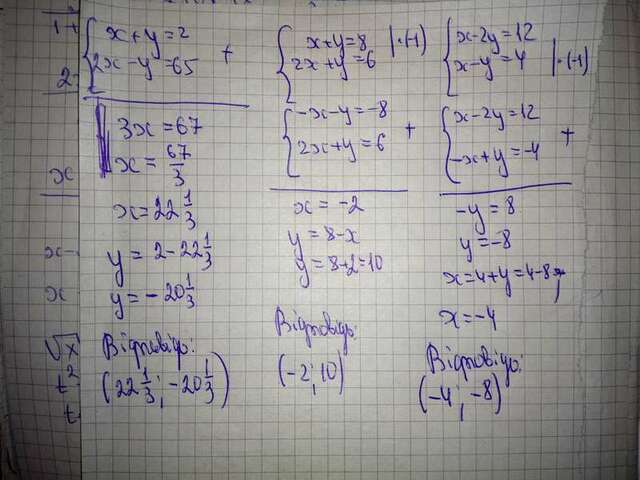 1+
2
x
x-
x
√x
t²
t
x+y=2
2x-y=65
+
3x=67
x=67/3
x=22 1/3
y=2-22 1/3
y=-20 1/3
Відповідь:
(22 1/3; -20 1/3)
x+y=8 |·(-1)
2x+y=6
-x-y=-8
2x+y=6
+
x=-2
y=8-x
y=8+2=10
Відповідь:
(-2; 10)
x-2y=12
x-y=4 |·(-1)
x-2y=12
-x+y=-4
+
-y=8
y=-8
x=4+y=4-8
x=-4
Відповідь:
(-4; -8)